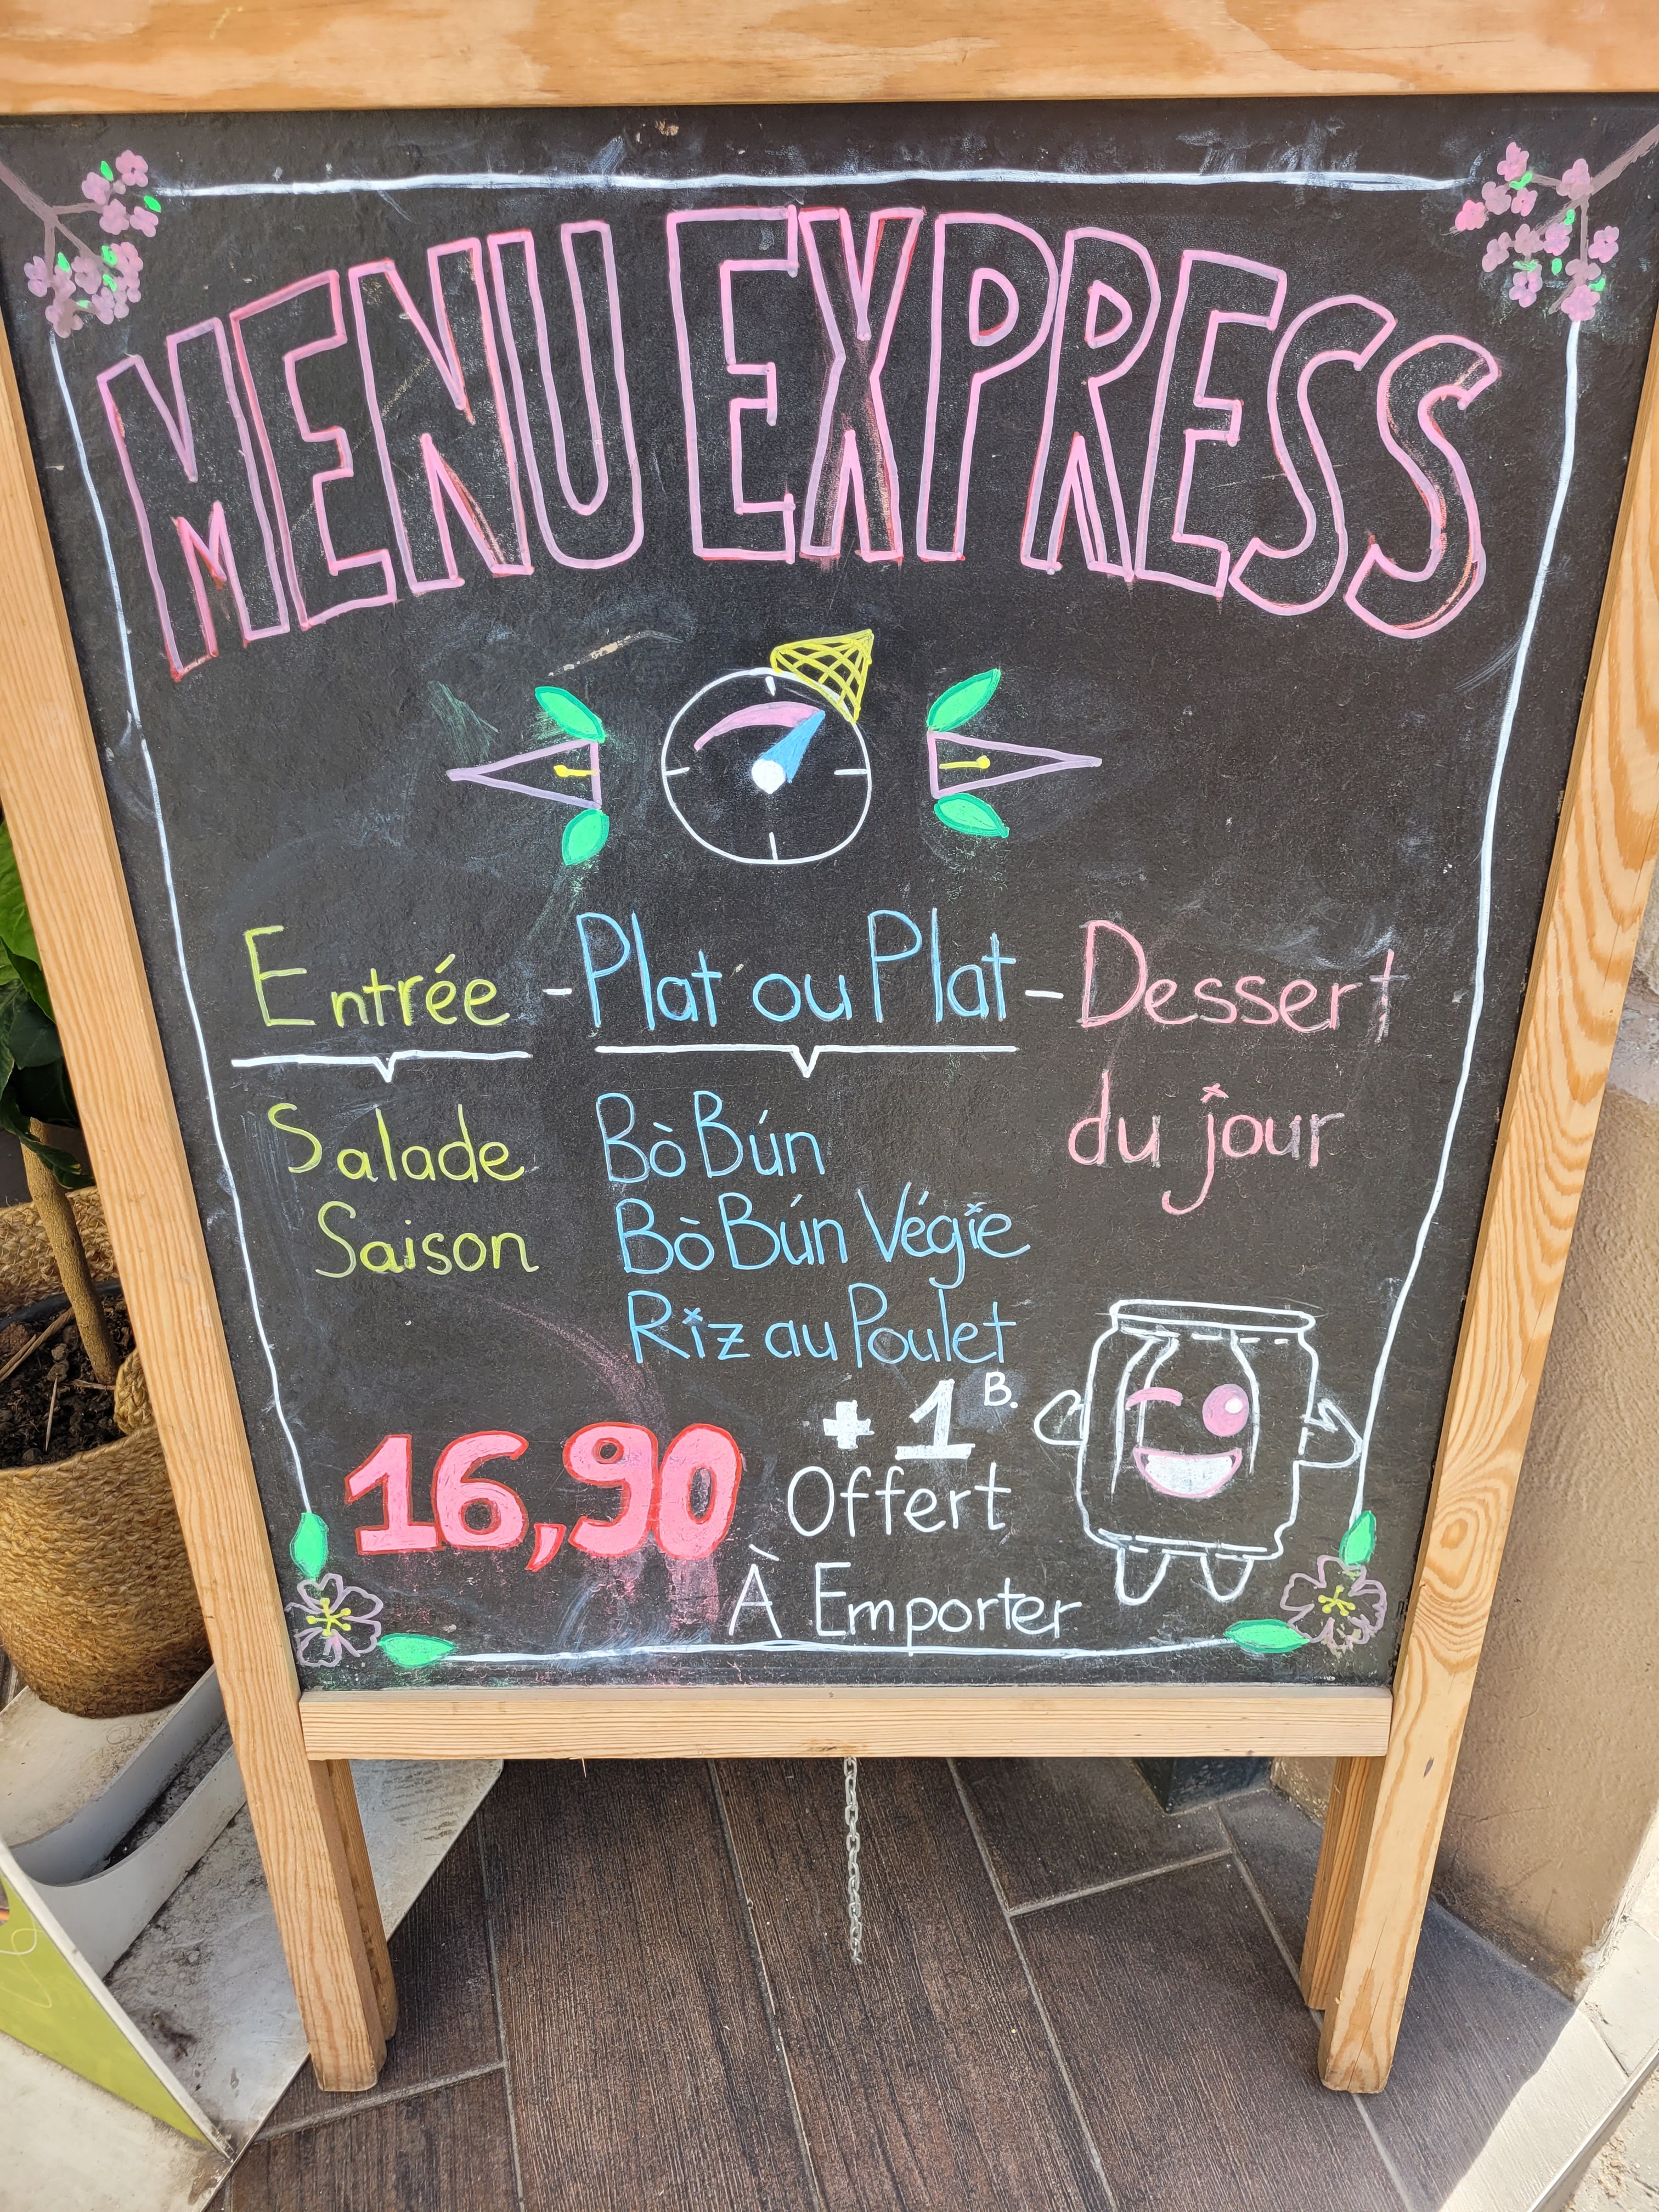 MENU EXPRESS
Entrée - Plat ou Plat - Dessert
du jour
Salade
Saison
Bò Bún
Bò Bún Végie
Riz au Poulet
16,90
+ 1 B.
Offert
À Emporter